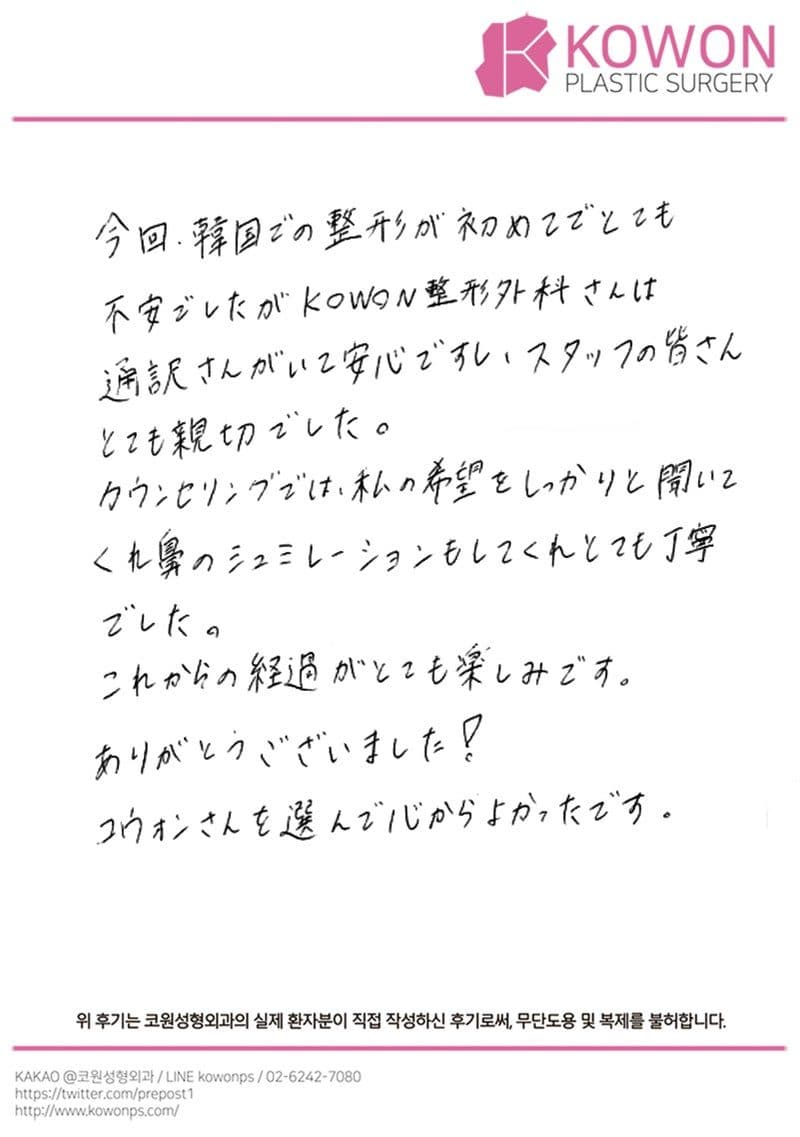 KOWON
PLASTIC SURGERY
今回、韓国での整形が初めてでとても
不安でしたがKOWON整形外科さんは
通訳さんがいて安心ですし、スタッフの皆さん
とても親切でした。
カウンセリングでは、私の希望をしっかりと聞いて
くれ鼻のシュミレーションもしてくれとても丁寧
でした。
これからの経過がとても楽しみです。
ありがとうございました!
コウォンさんを選んで心からよかったです。
위 후기는 코원성형외과의 실제 환자분이 직접 작성하신 후기로써, 무단도용 및 복제를 불허합니다.
KAKAO @코원성형외과 / LINE kowonps / 02-6242-7080
https://twitter.com/prepost1
http://www.kowonps.com/